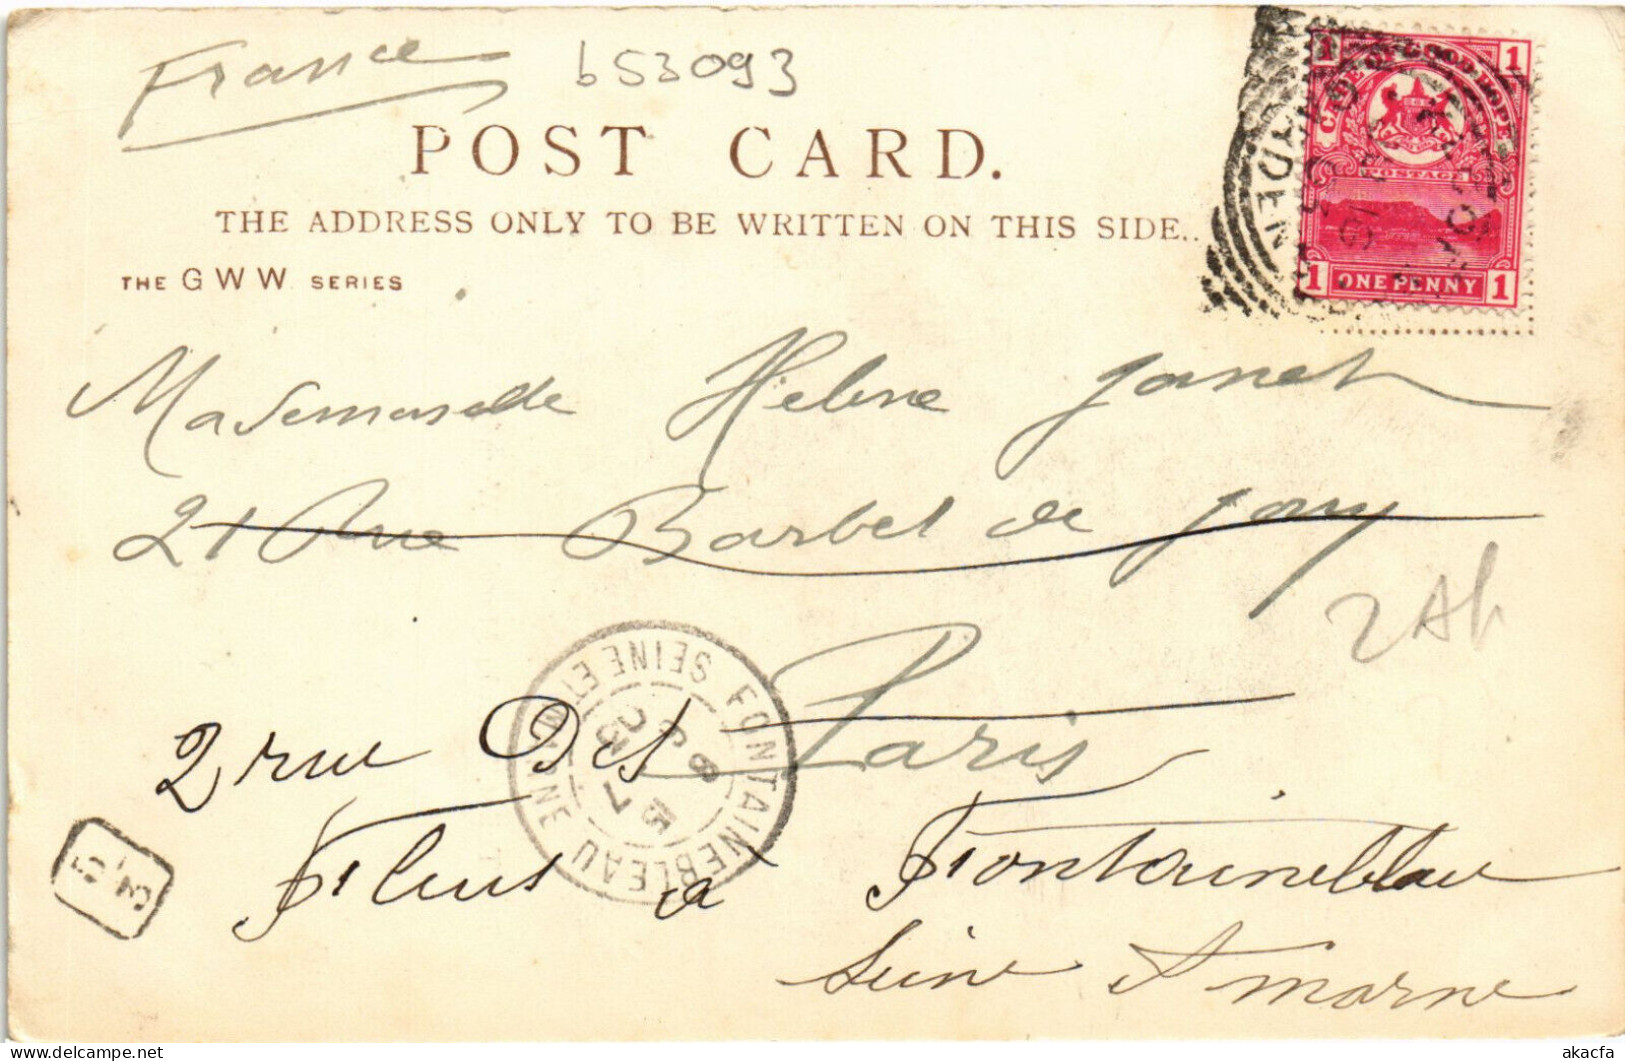 France
b53093
POST CARD.
THE ADDRESS ONLY TO BE WRITTEN ON THIS SIDE.
THE GWW SERIES
1 CAPE OF GOOD HOPE 1
POSTAGE
1 ONE PENNY 1
Mademoiselle Helene Janet
21 Rue Barbet de Jouy
Paris
2 rue Des
Fleurs à Fontainebleau
Seine et marne
FONTAINEBLEAU SEINE ET MARNE
akacfa